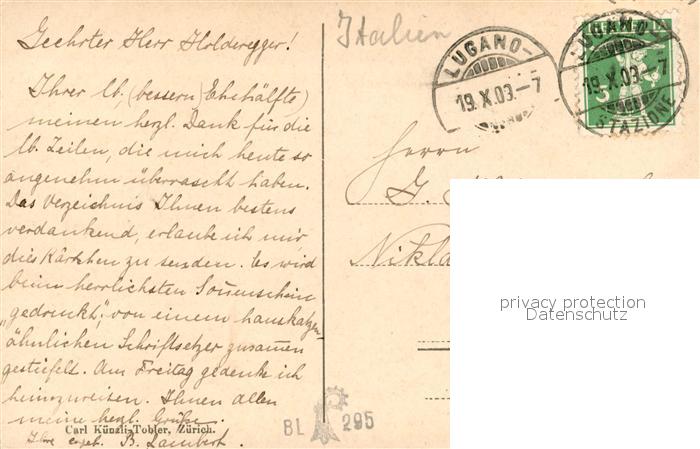 Geehrter Herr Holderegger!
Ihrer lb. (bessern) Ehehälfte)
meinen herzl. Dank für die
lb. Zeilen, die mich heute so
angenehm überrascht haben.
Das Verzeichnis Ihnen bestens
verdankend, erlaube ich mir
dies Kärtchen zu senden. Es wird
beim herrlichsten Sonnenschein
"gedruckt", von einem hauskatzen-
ähnlichen Schriftsetzer zusamen
gestiefelt. Am Freitag gedenke ich
heimzureisen. Ihnen allen
meine herzl. Grüße.
Carl Künzli-Tobler, Zürich.
Ihre ergeb. B. Lambert.
Italien
LUGANO-
19.X.09.-7
LUGANO
19.X.09.-7
STAZIONE
5
Herrn
G.
Nikla
privacy protection
Datenschutz
BL 295